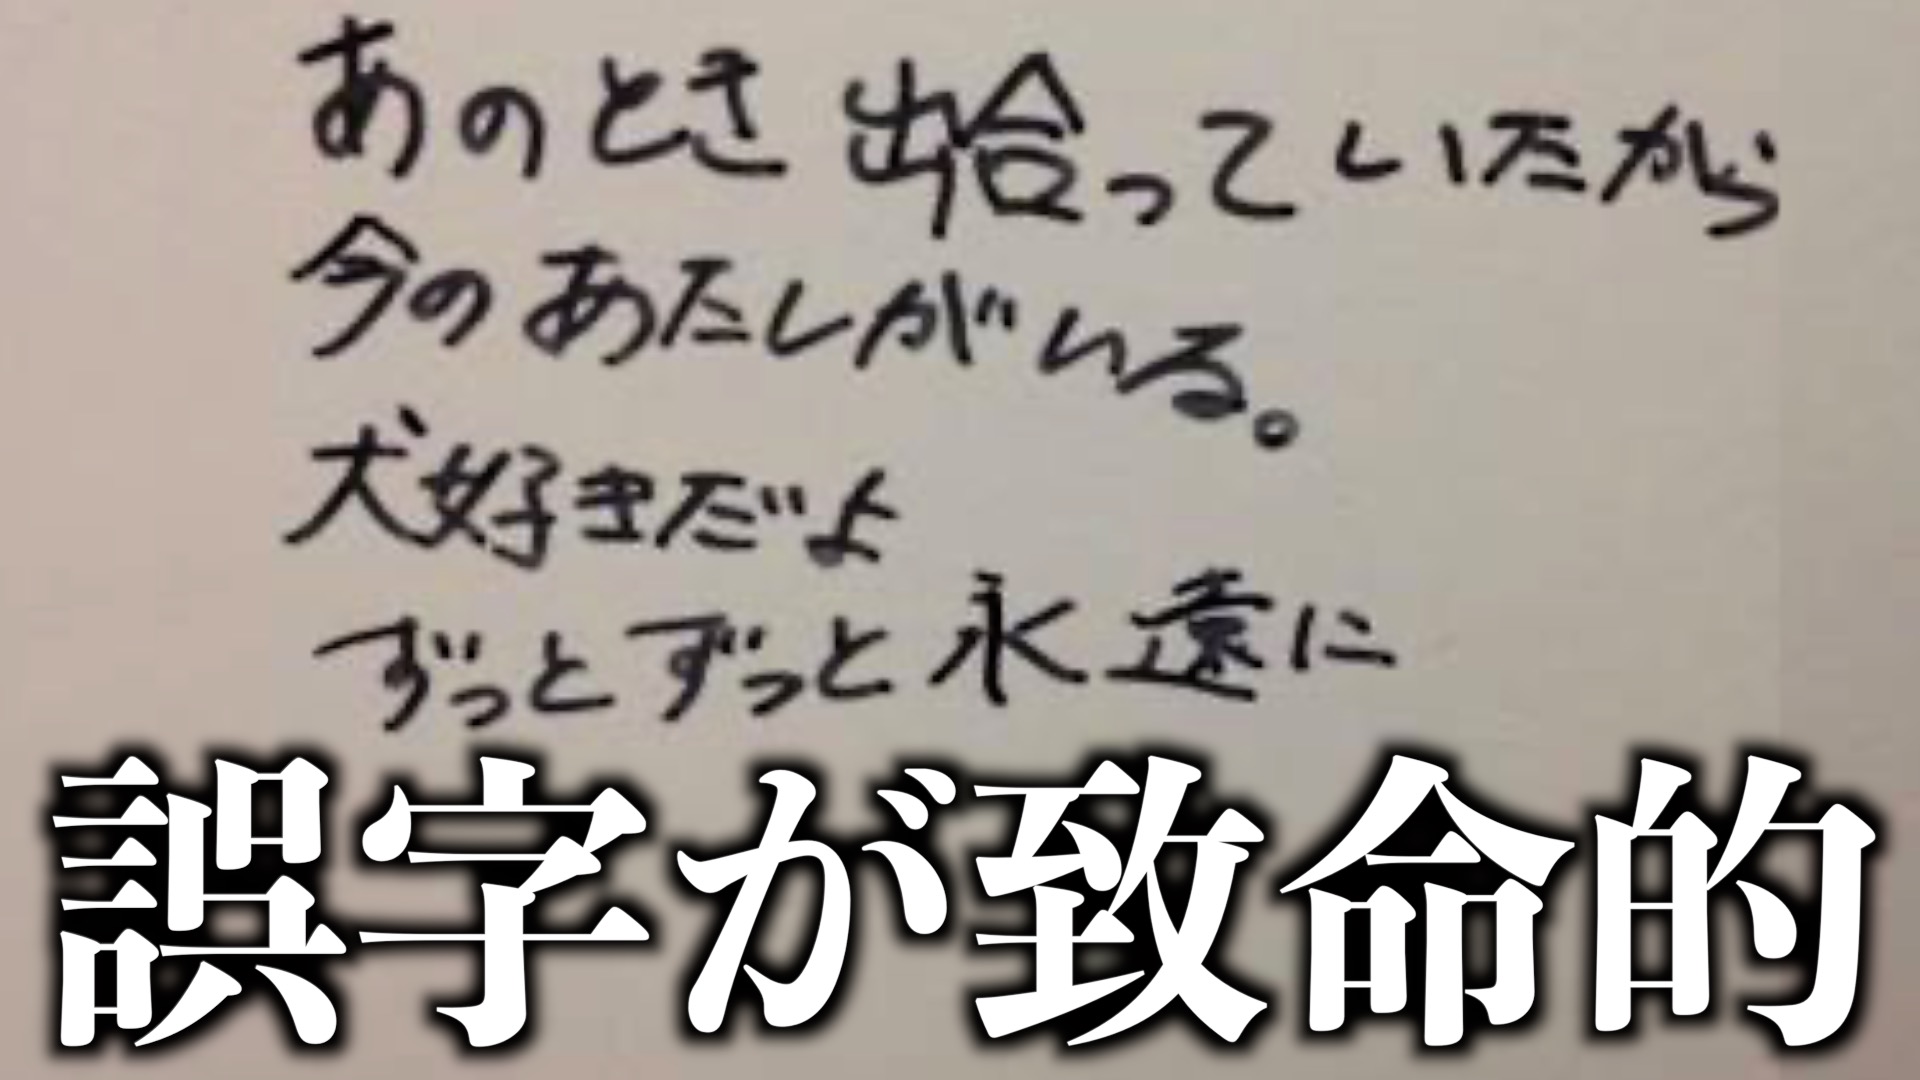 あのとき出会っていたから
今のあたしがいる。
犬好きだよ
ずっとずっと永遠に
誤字が致命的